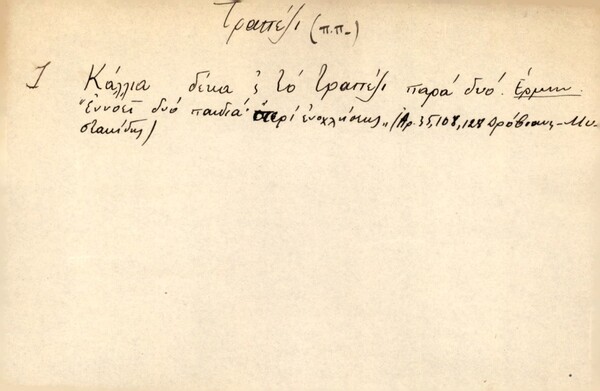 Τραπέζι (π.π-)
1 Κάλλια δέκα ς τό τραπέζι παρά δυό. Ερμην.
"Εννοεί δυό παιδιά περί ενοχλήσεως" (Αρ. 35,108,128 Δρόβιανη-Μυ-
στακίδης)